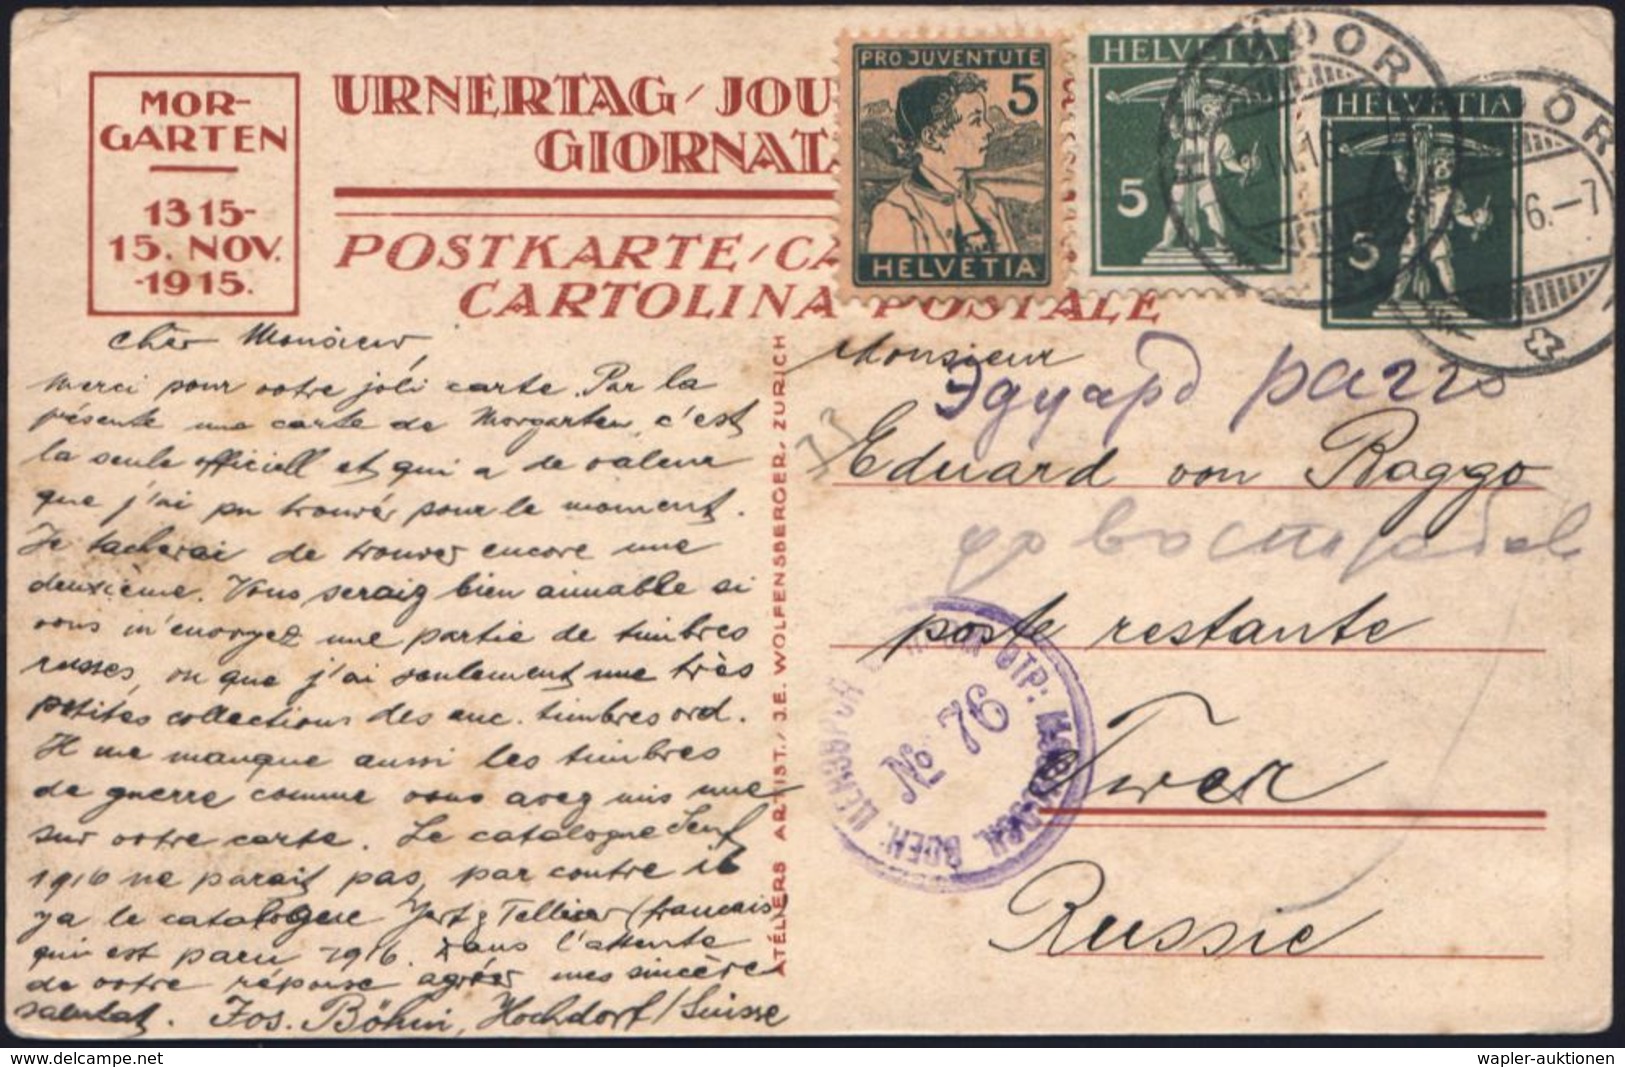 MOR-
GARTEN
1315-
15. NOV.
-1915.
URNERTAG / JOU
GIORNATA
POSTKARTE / CA
CARTOLINA POSTALE
PRO JUVENTUTE
5
HELVETIA
HELVETIA
5
HELVETIA
5
DOR
16.–7
cher Monsieur,
Merci pour votre joli carte. Par la
présente une carte de Morgarten, c'est
la seule officiell et qui a de valeur
que j'ai pu trouver pour le moment.
Je tacherai de trouver encore une
deuxième. Vous seraig bien aimable si
vous m'envoyez une partie de timbres
russes, ou que j'ai seulement une très
petites collections des anc. timbres ord.
Il me manque aussi les timbres
de guerre comme vous avez mis une
sur votre carte. Le catalogue Senf
1916 ne parait pas, par contre il
ya le catalogue Yert & Tellier (francais)
qui est paru 1916. Dans l'attente
de votre réponse agréer mes sincère
salutat. Jos. Böhm, Hochdorf/Suisse
ATÉLIERS ARTIST. J.E. WOLFENSBERGER, ZURICH
Monsieur
Эдуард
Eduard von Raggo
до востребов
poste restante
Twer
Russie
№ 76
ВОЕН. ЦЕНЗУРОЙ
delcampe.net
wapler-auktionen